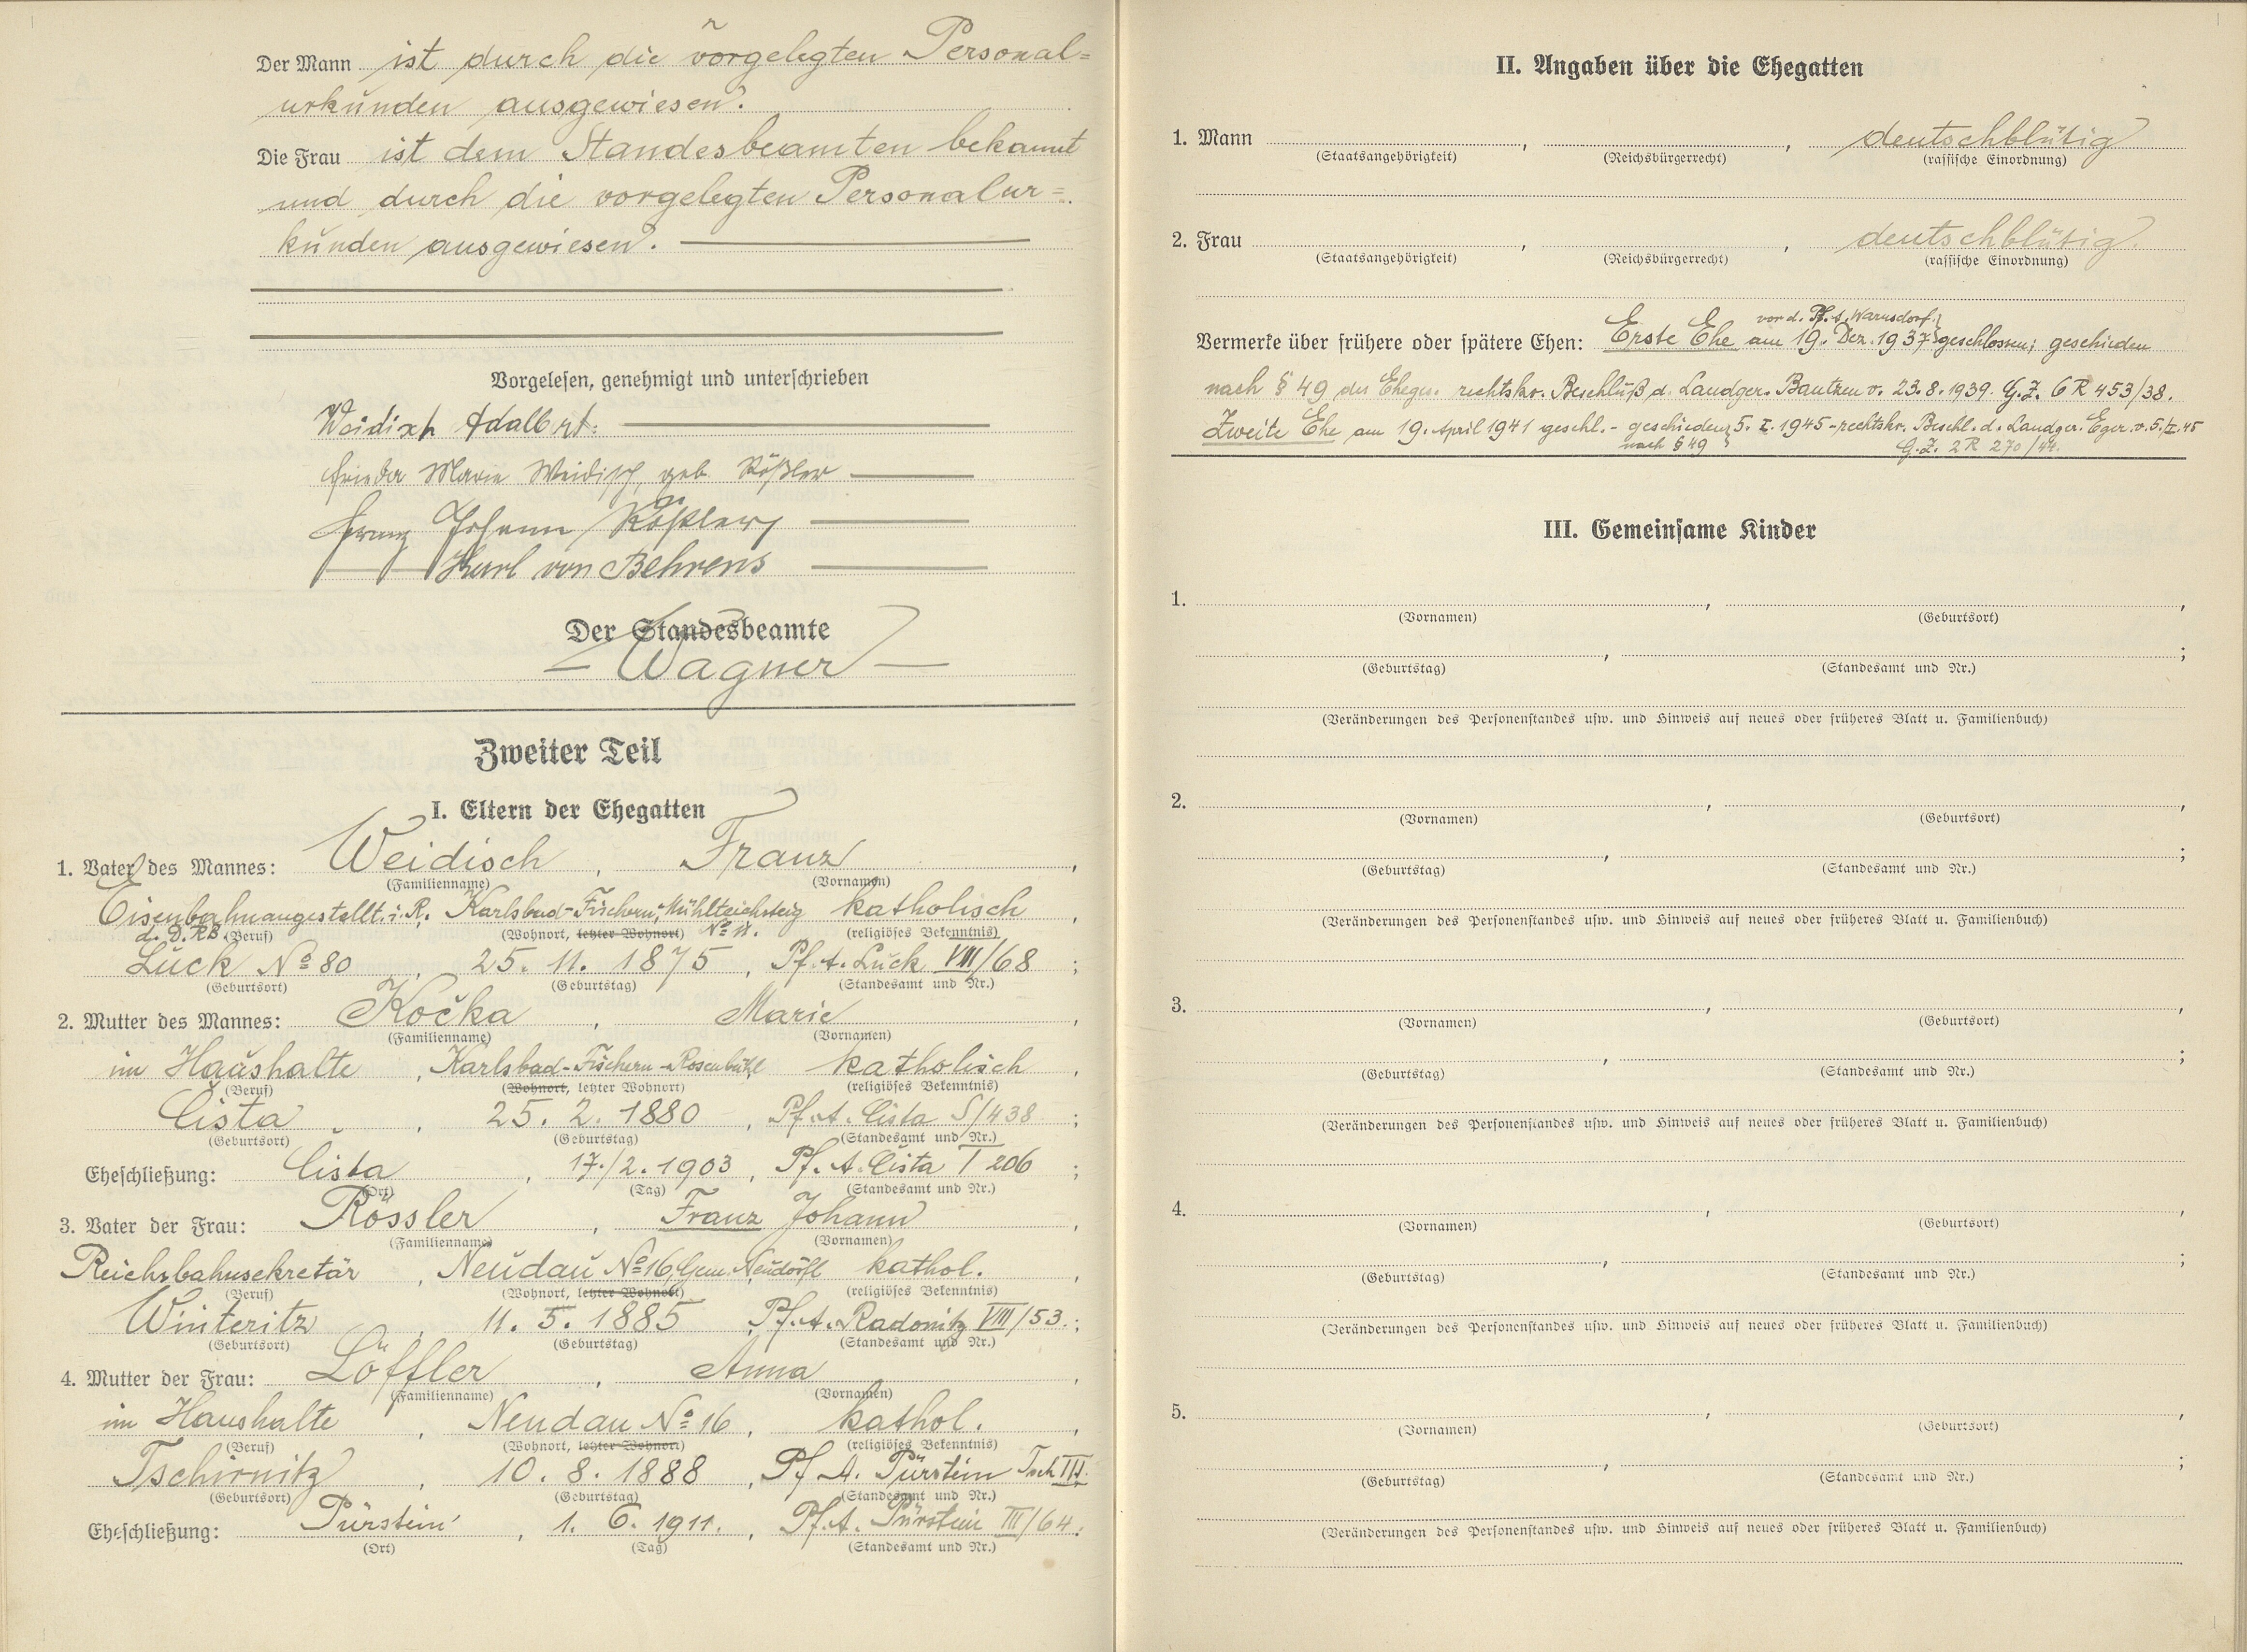 Der Mann ist durch die vorgelegten Personal=
urkunden ausgewiesen.
Die Frau ist dem Standesbeamten bekannt
und durch die vorgelegten Personalur=
kunden ausgewiesen.
Vorgelesen, genehmigt und unterschrieben
Weidisch Adalbert.
Frieda Marie Weidisch, geb. Rößler
Franz Johann Rößler
Karl von Behrens
Der Standesbeamte
Wagner
Zweiter Teil
I. Eltern der Ehegatten
1. Vater des Mannes: Weidisch, Franz,
(Familienname) (Vornamen)
Eisenbahnangestellt. i. R. Karlsbad-Fischern, Mühlteichsteig katholisch,
d. D. RB. (Beruf) (Wohnort, letzter Wohnort) No (religiöses Bekenntnis)
Luck No 80, 25. 11. 1875, Pf. A. Luck VIII/68;
(Geburtsort) (Geburtstag) (Standesamt und Nr.)
2. Mutter des Mannes: Kočka, Marie,
(Familienname) (Vornamen)
im Haushalte, Karlsbad-Fischern-Rosenbühl katholisch,
(Beruf) (Wohnort, letzter Wohnort) (religiöses Bekenntnis)
Čista, 25. 2. 1880, Pf. A. Čista S/438;
(Geburtsort) (Geburtstag) (Standesamt und Nr.)
Eheschließung: Čista, 17./2. 1903, Pf. A. Čista I 206;
(Ort) (Tag) (Standesamt und Nr.)
3. Vater der Frau: Rössler, Franz Johann,
(Familienname) (Vornamen)
Reichsbahnsekretär, Neudau No 16, Gem. Neudörfl kathol.,
(Beruf) (Wohnort, letzter Wohnort) (religiöses Bekenntnis)
Winteritz, 11. 5. 1885, Pf. A. Radonitz VIII/53.;
(Geburtsort) (Geburtstag) (Standesamt und Nr.)
4. Mutter der Frau: Löffler, Anna,
(Familienname) (Vornamen)
im Haushalte, Neudau No 16, kathol.,
(Beruf) (Wohnort, letzter Wohnort) (religiöses Bekenntnis)
Tschirnitz, 10. 8. 1888, Pf. A. Pürstein Tsch III.
(Geburtsort) (Geburtstag) (Standesamt und Nr.)
Eheschließung: Pürstein, 1. 6. 1911., Pf. A. Pürstein III/64;
(Ort) (Tag) (Standesamt und Nr.)
II. Angaben über die Ehegatten
1. Mann , , deutschblütig
(Staatsangehörigkeit) (Reichsbürgerrecht) (rassische Einordnung)
2. Frau , , deutschblütig.
(Staatsangehörigkeit) (Reichsbürgerrecht) (rassische Einordnung)
vor d. Pf. A. Warnsdorf
Vermerke über frühere oder spätere Ehen: Erste Ehe am 19. Dez. 1937 geschlossen; geschieden
nach § 49 des Eheges. rechtskr. Beschluß d. Landger. Bautzen v. 23. 8. 1939. G.Z. 6 R 453/38.
Zweite Ehe am 19. April 1941 geschl. - geschieden 5. I. 1945 - rechtskr. Beschl. d. Landger. Eger. v. 5./I. 45
nach § 49 G.Z. 2 R 270/44.
III. Gemeinsame Kinder
1. ,,
(Vornamen) (Geburtsort)
, ;
(Geburtstag) (Standesamt und Nr.)
(Veränderungen des Personenstandes usw. und Hinweis auf neues oder früheres Blatt u. Familienbuch)
2. ,,
(Vornamen) (Geburtsort)
, ;
(Geburtstag) (Standesamt und Nr.)
(Veränderungen des Personenstandes usw. und Hinweis auf neues oder früheres Blatt u. Familienbuch)
3. ,,
(Vornamen) (Geburtsort)
, ;
(Geburtstag) (Standesamt und Nr.)
(Veränderungen des Personenstandes usw. und Hinweis auf neues oder früheres Blatt u. Familienbuch)
4. ,,
(Vornamen) (Geburtsort)
, ;
(Geburtstag) (Standesamt und Nr.)
(Veränderungen des Personenstandes usw. und Hinweis auf neues oder früheres Blatt u. Familienbuch)
5. ,,
(Vornamen) (Geburtsort)
, ;
(Geburtstag) (Standesamt und Nr.)
(Veränderungen des Personenstandes usw. und Hinweis auf neues oder früheres Blatt u. Familienbuch)